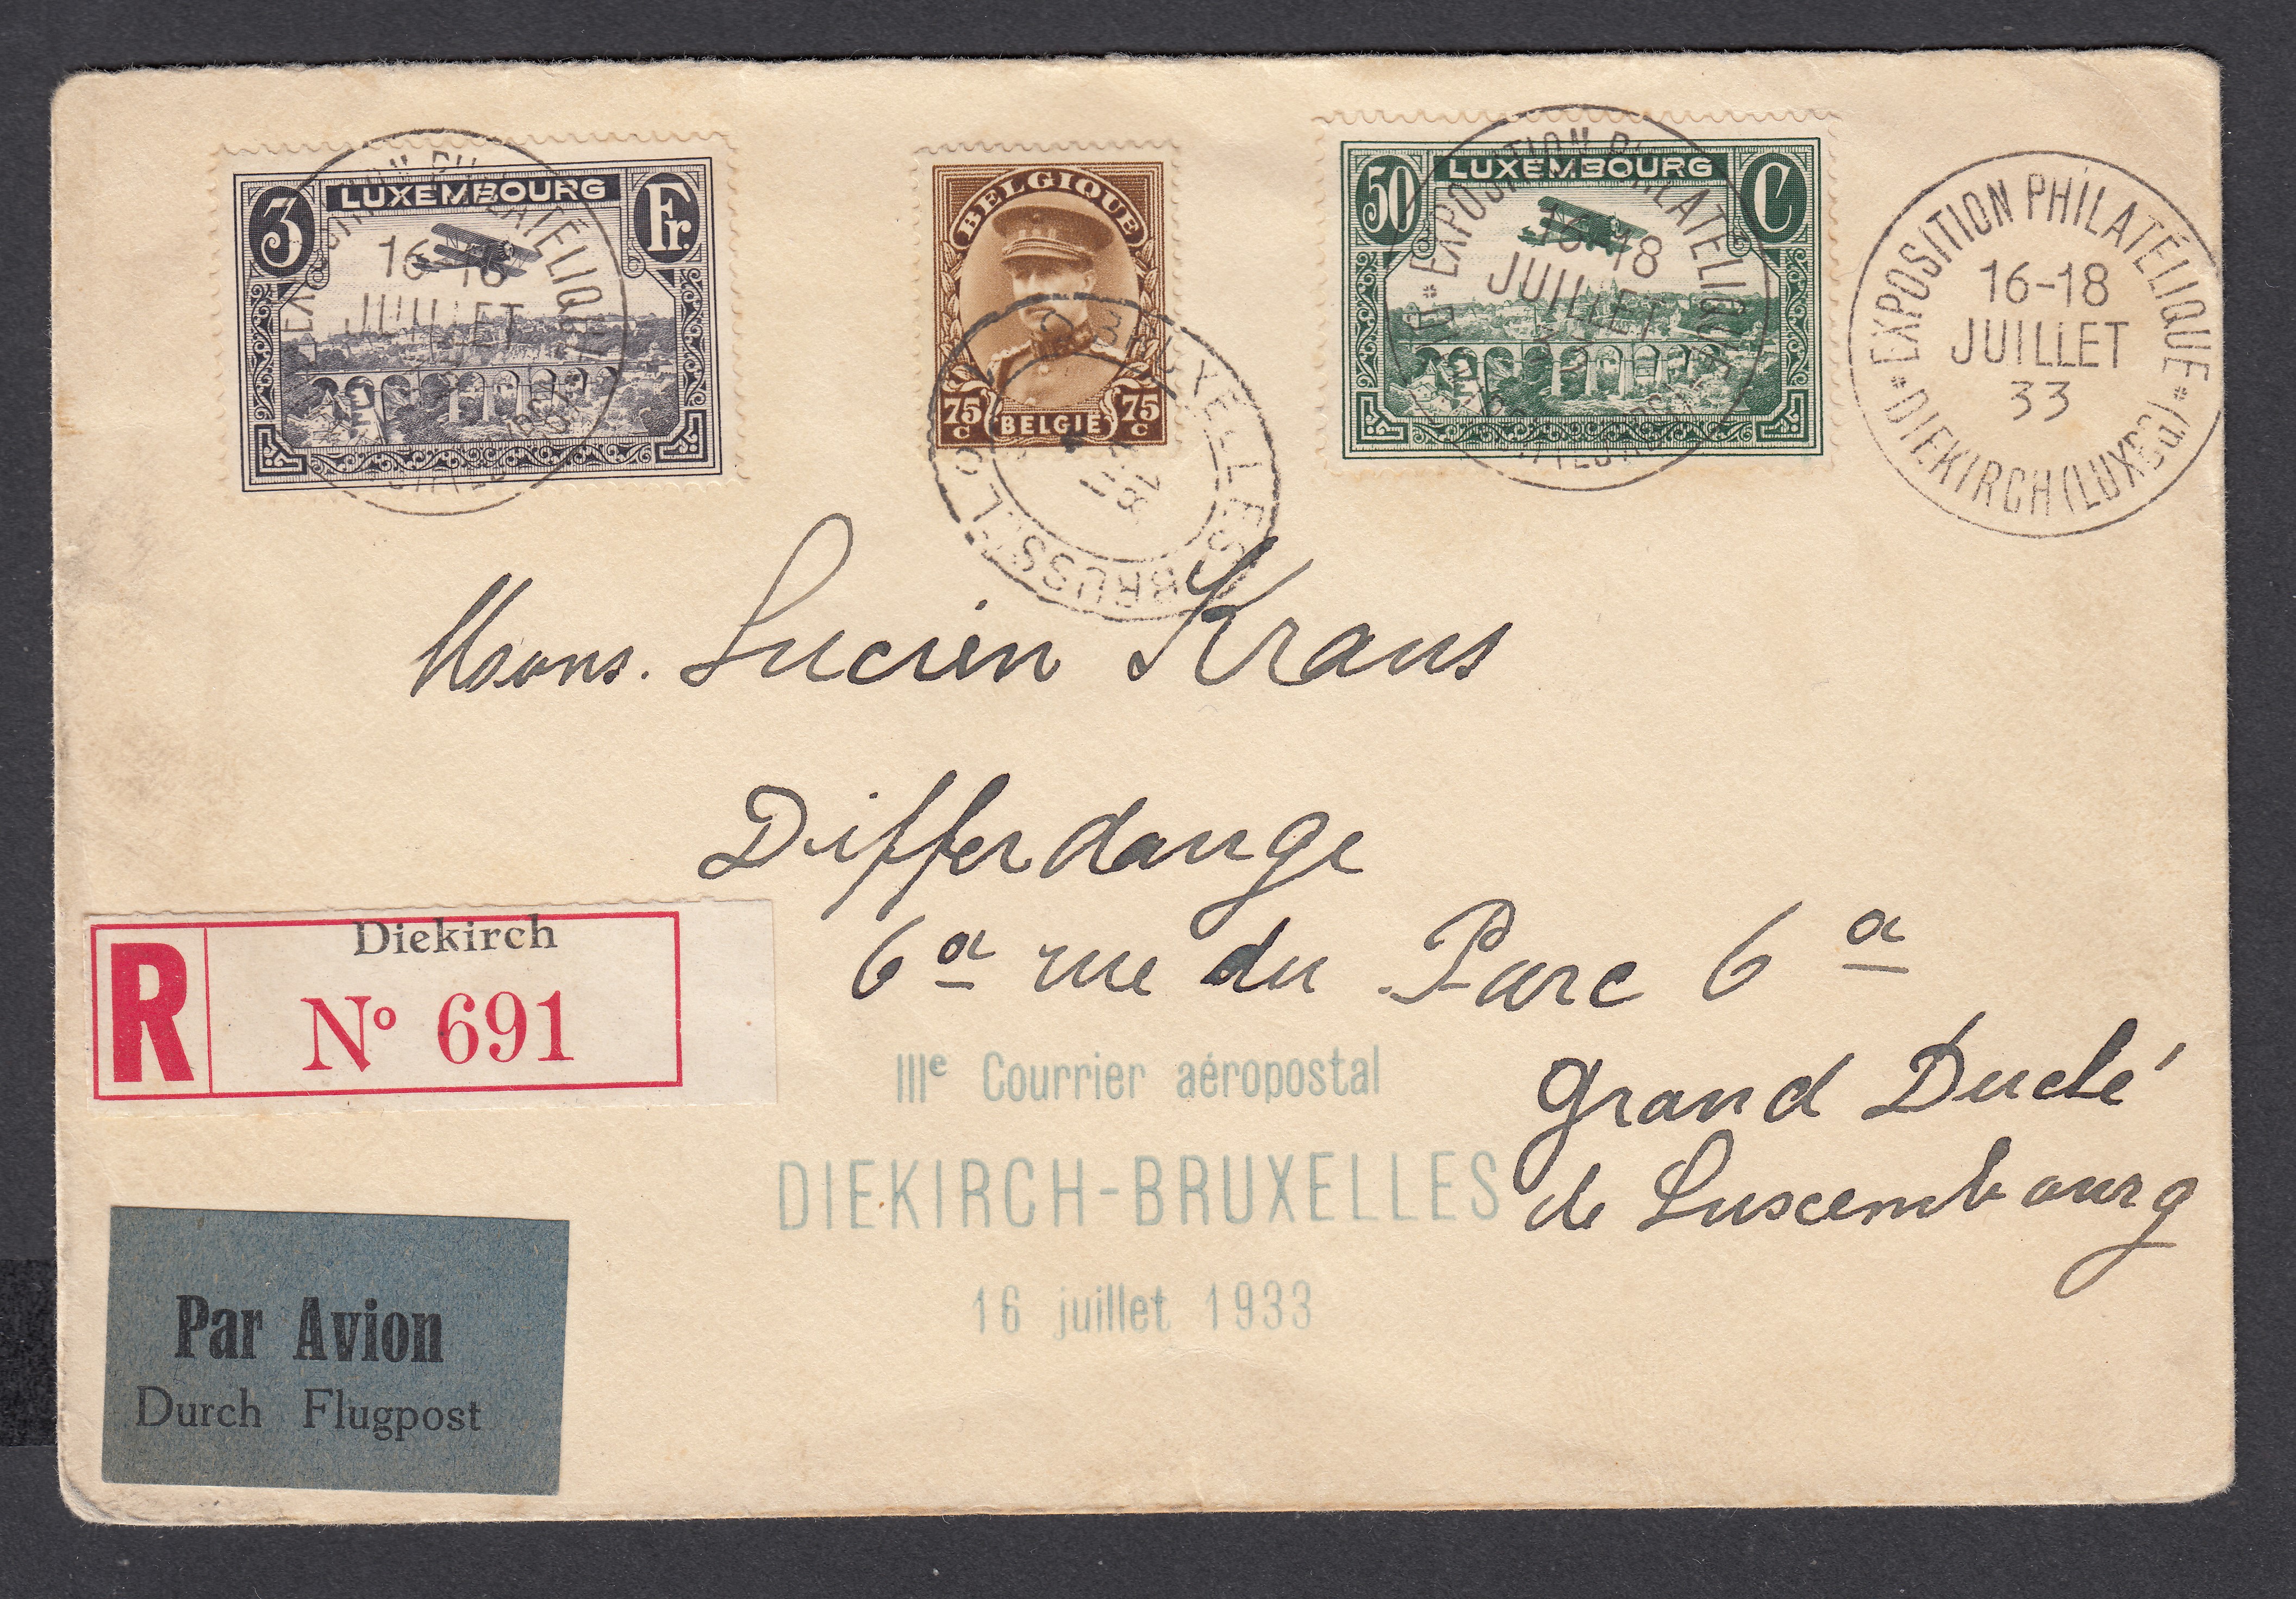 3 LUXEMBOURG Fr.
BELGIQUE
75 c BELGIË 75 c
50 LUXEMBOURG C
EXPOSITION PHILATÉLIQUE
16-18
JUILLET
EXPOSITION PHILATÉLIQUE
16-18
JUILLET
EXPOSITION PHILATÉLIQUE
16-18
JUILLET
33
DIEKIRCH (LUXBG)
BRUXELLES
BRUSSEL
Mons. Lucien Kraus
Differdange
6a rue du Parc 6a
Grand Duché
de Luxembourg
R Diekirch
No 691
IIIe Courrier aéropostal
DIEKIRCH-BRUXELLES
16 juillet 1933
Par Avion
Durch Flugpost